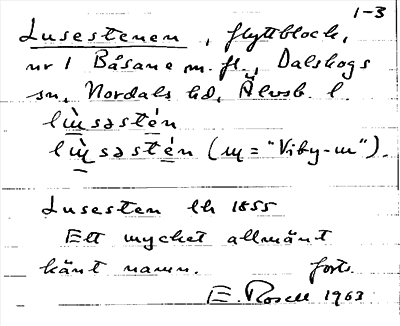 1-3
Lusestenen, flyttblock,
nr 1 Båsane m. fl., Dalskogs
sn, Nordals hd, Älvsb. l.
lɯ̀səstén
lɯ̀səstén (ɯ = "Viby-ɯ").
Lusesten lh 1855
Ett mycket allmänt
känt namn. forts.
E. Rosell 1963